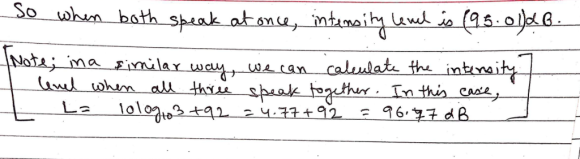 So when both speak at once, intensity level is (95.01)dB.
[Note; in a similar way, we can calculate the intensity
level when all three speak together. In this case,
L = 10log₁₀3 + 92 = 4.77 + 92 = 96.77 dB]